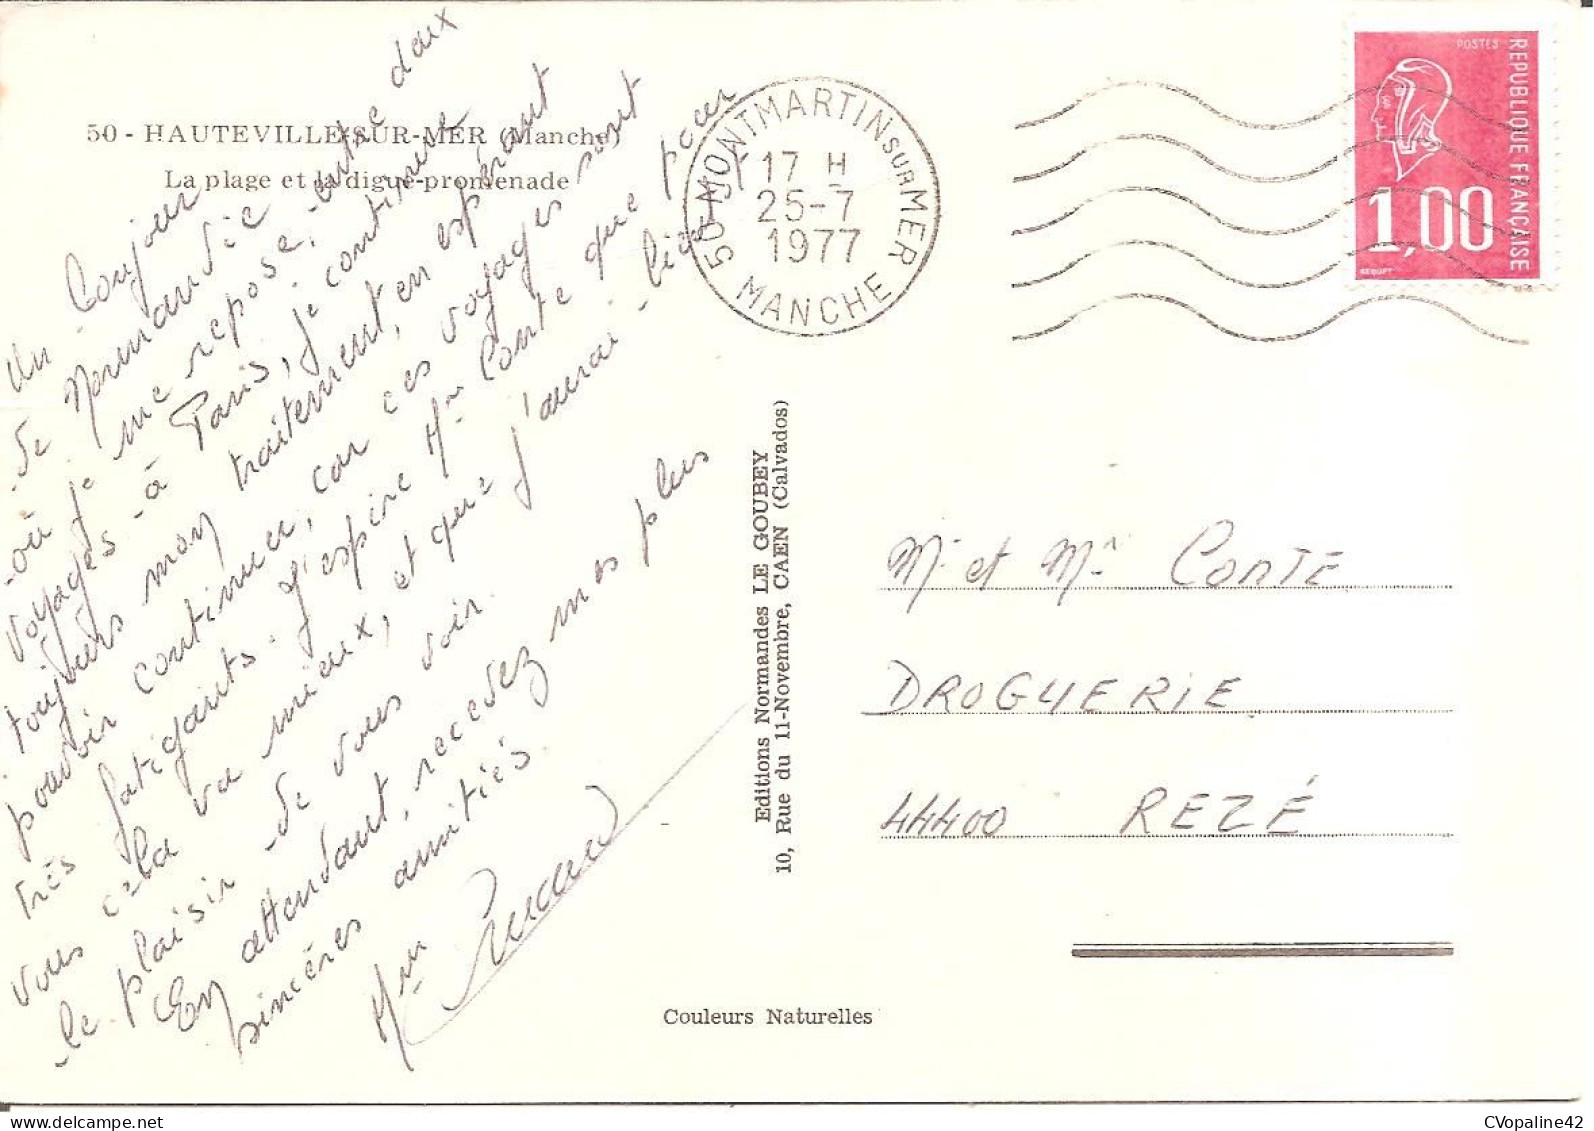 50 - HAUTEVILLE-SUR-MER (Manche)
La plage et la digue-promenade
Un bonjour
de Normandie
où je me repose, entre deux
voyages à Paris, je continue
toujours mon traitement, en espérant
pouvoir continuer, car ces voyages sont
très fatigants. J'espère Mme Conte que pour
vous cela va mieux, et que j'aurai bientôt
le plaisir de vous voir.
En attendant, recevez mes plus
sincères amitiés.
Mme
50-MONTMARTIN SUR MER
17 H
25-7
1977
MANCHE
POSTES
REPUBLIQUE FRANÇAISE
1,00
BEQUET
Editions Normandes LE GOUBEY
10, Rue du 11-Novembre, CAEN (Calvados)
Mr et Me CONTE
DROGUERIE
44400 REZÉ
Couleurs Naturelles
CVopaline42